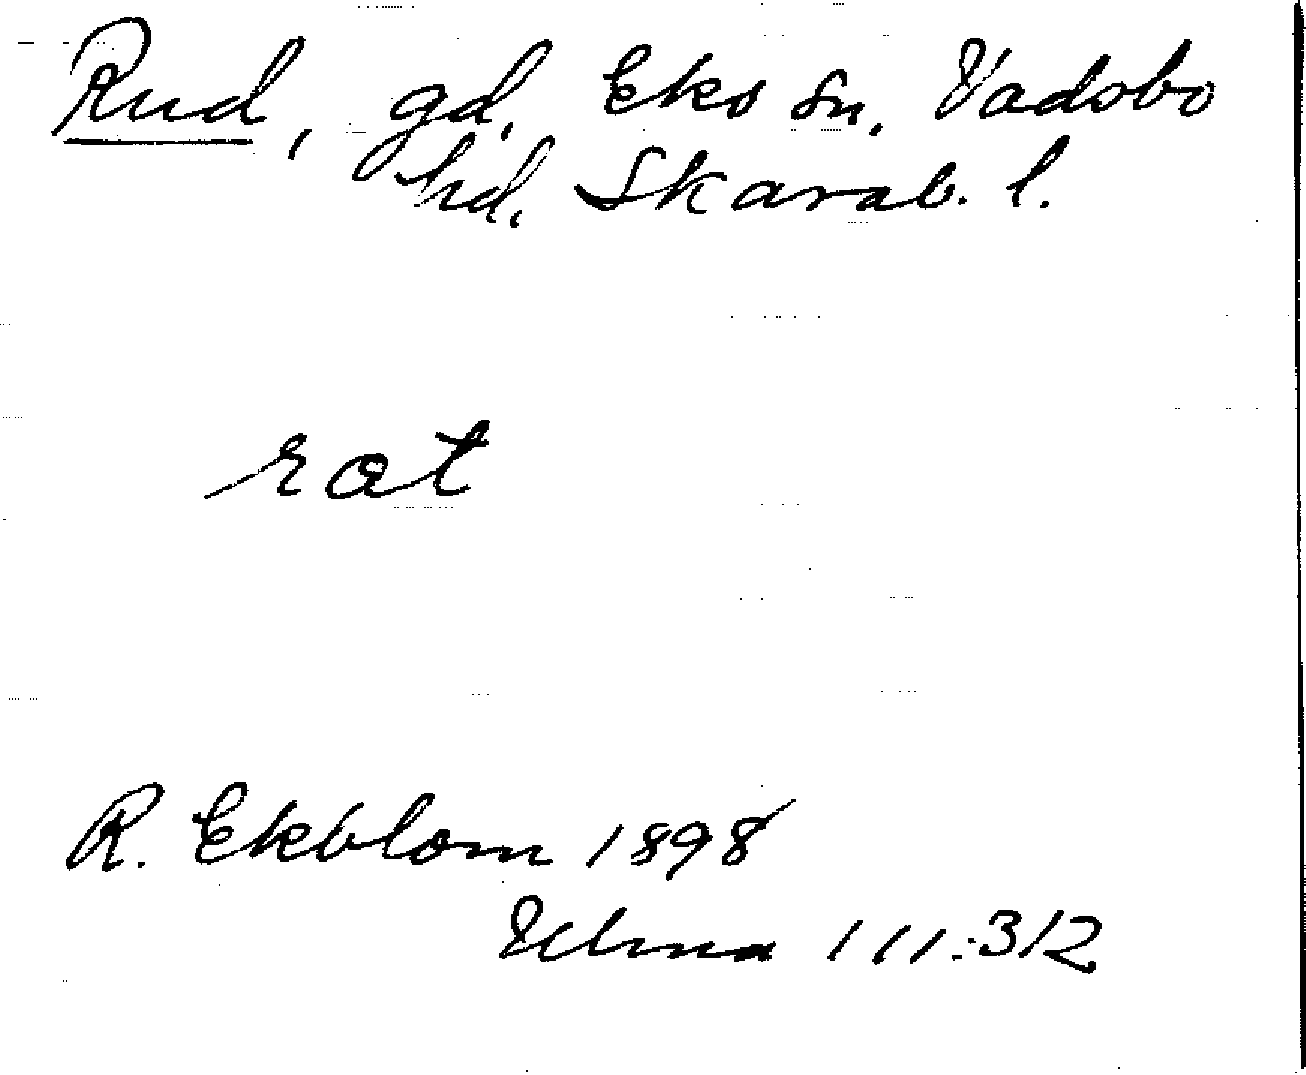 Rud, gd, Eks sn. Vadsbo
hd. Skarab. l.
rat
R. Ekblom 1898
111:312